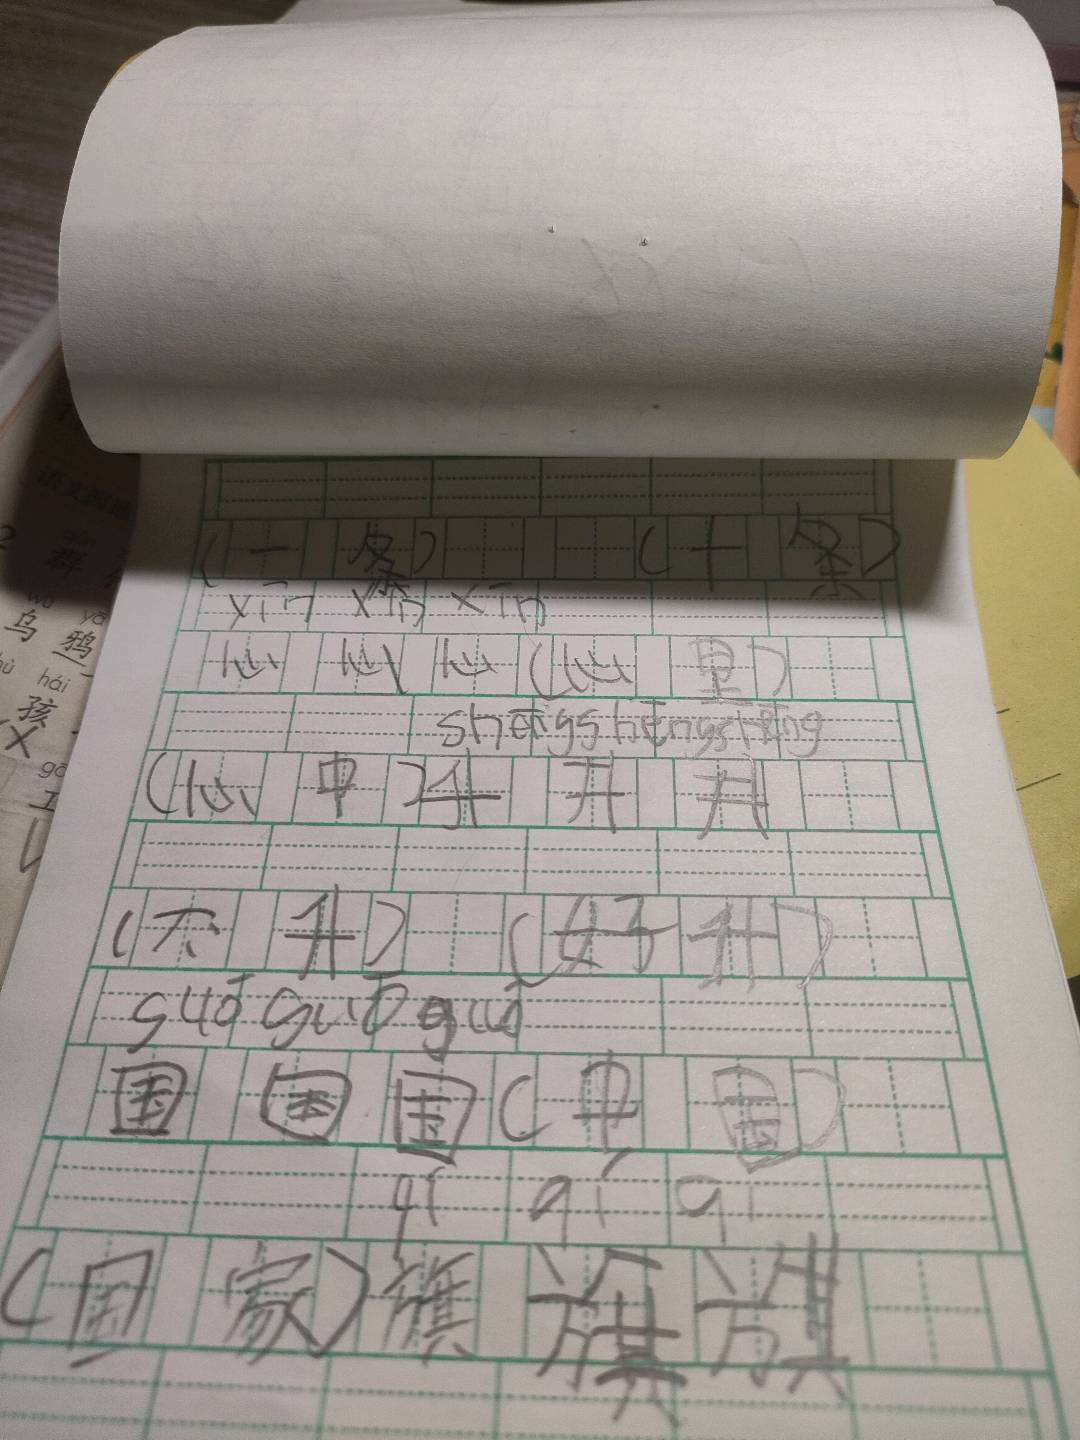 (一条) (十条)
xīn xīn xīn
心心心(心里)
shēngshēngshēng
(心中)升升升
(不升) (好升)
guō guō guo
国国国(中国)
qí qí qi
(国家)旗旗旗
群
wū yā
乌鸦
hái
孩